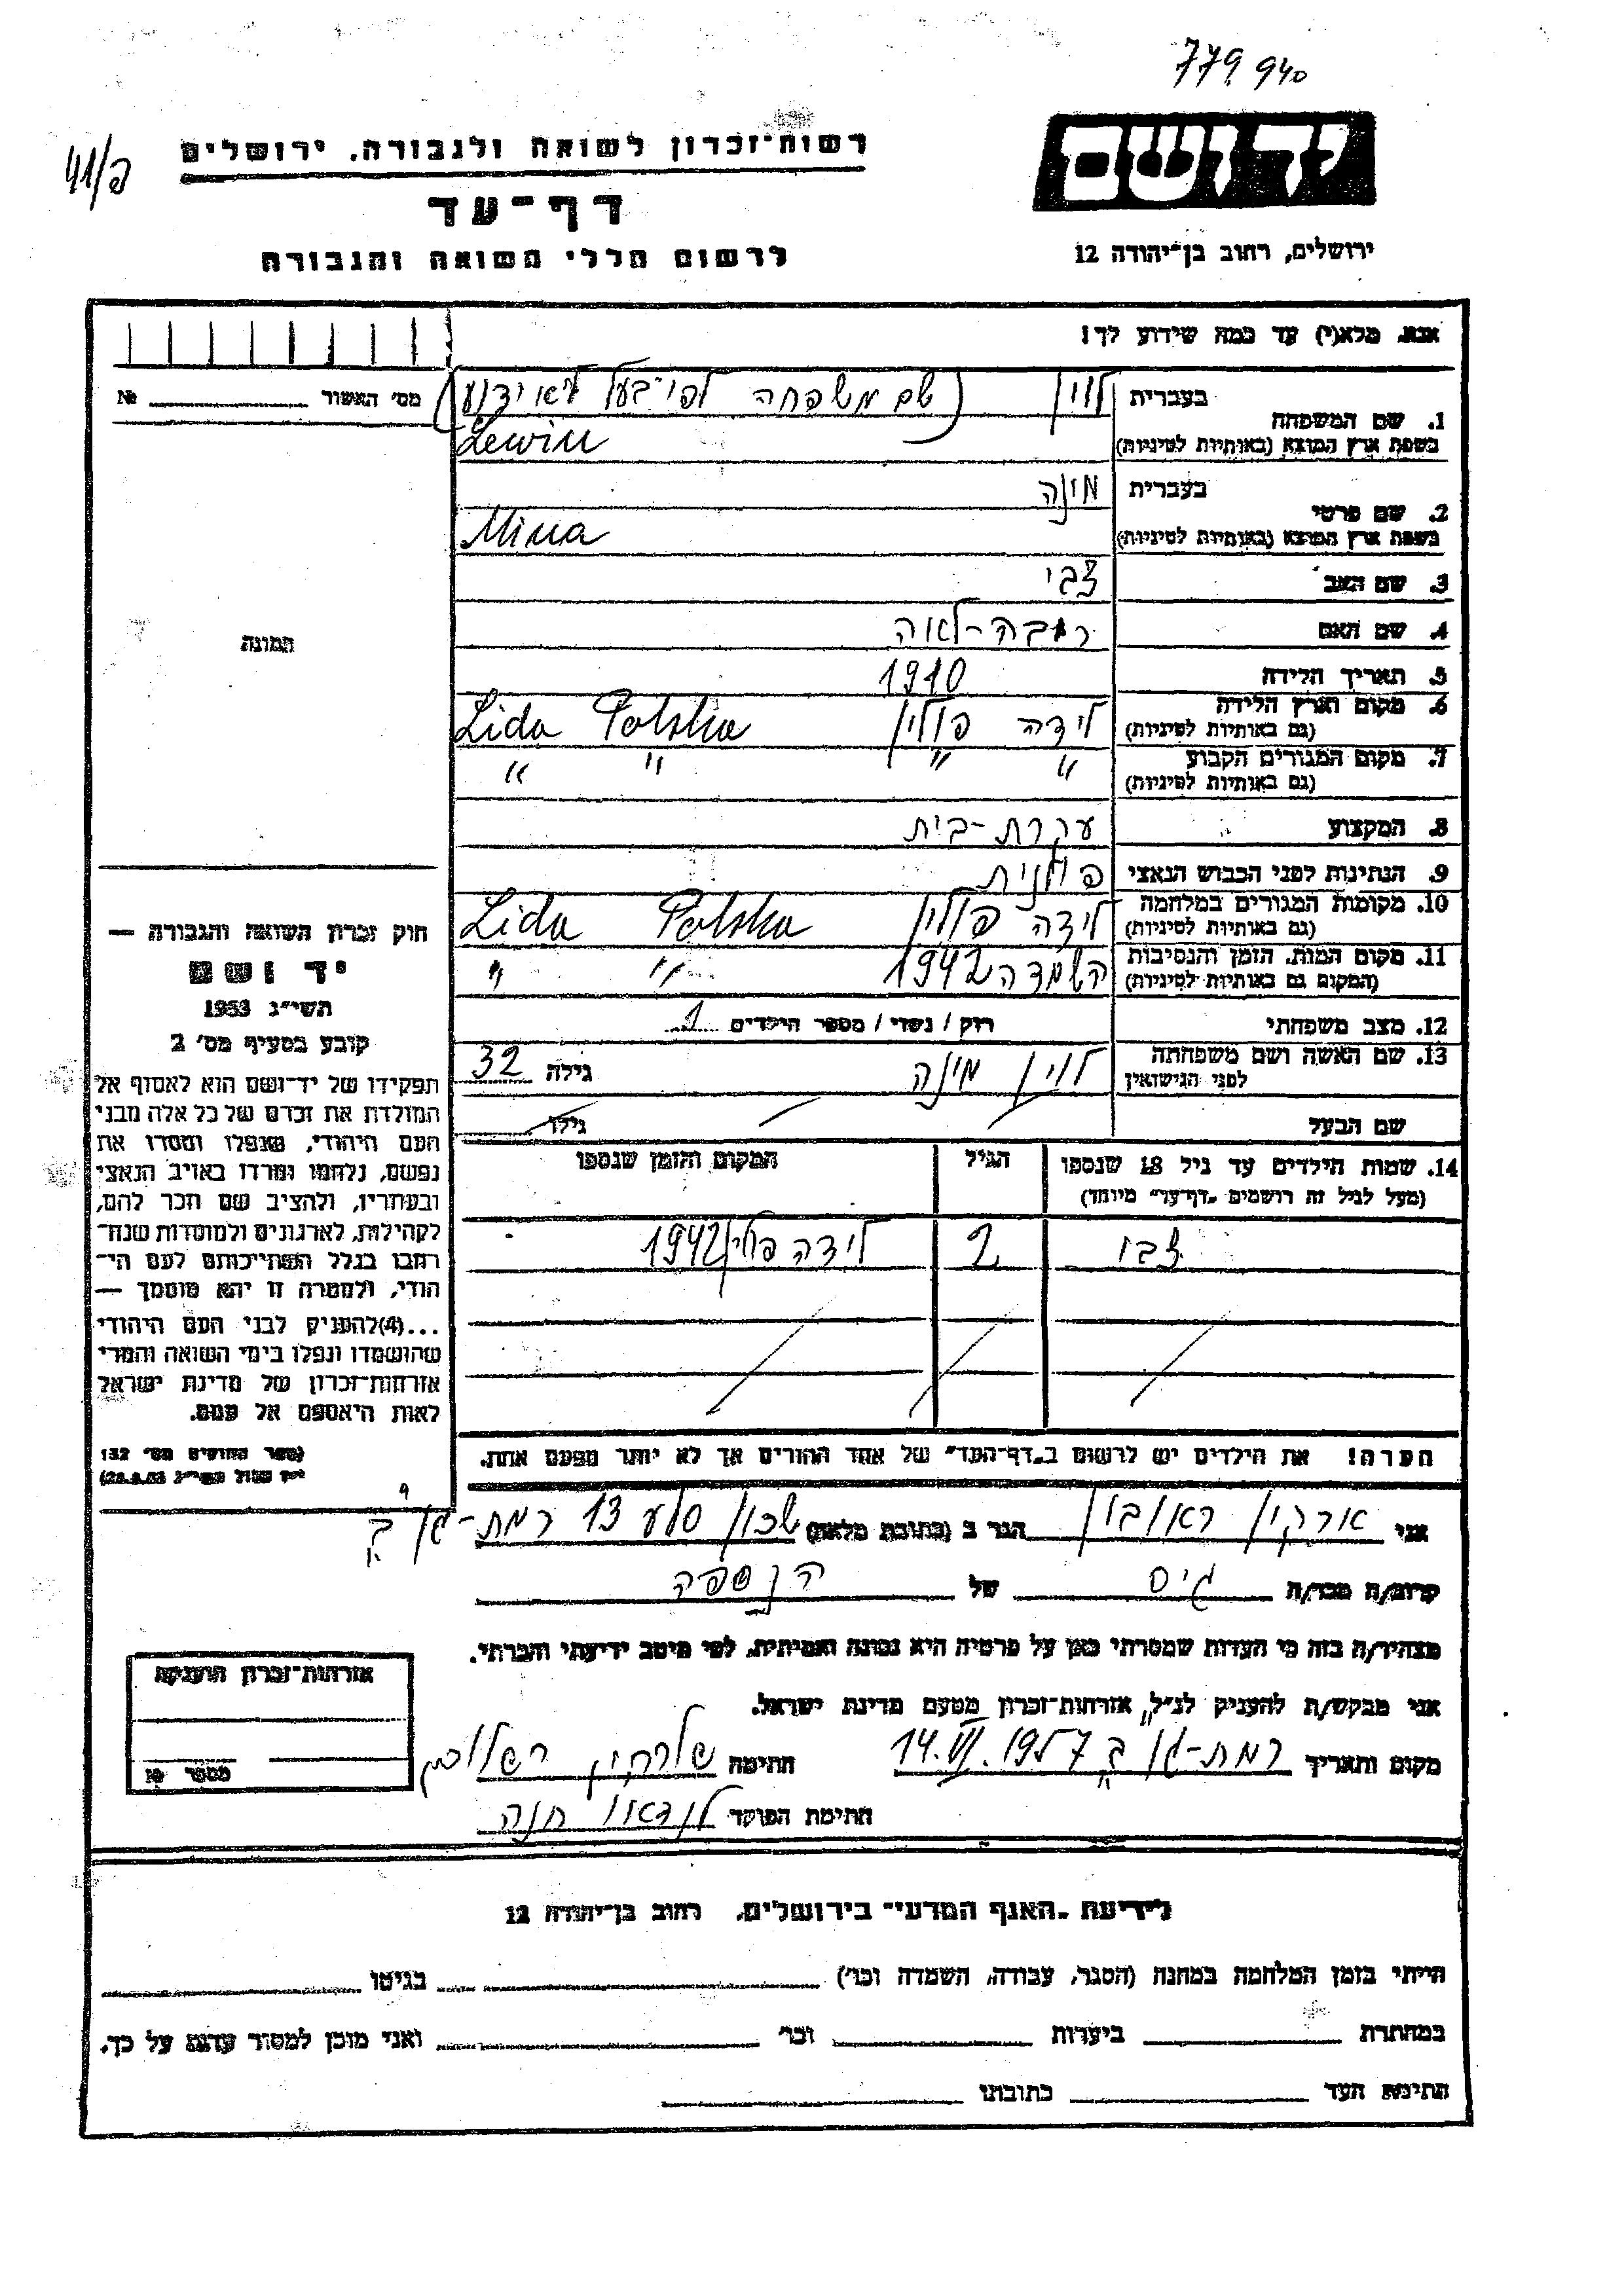 779940
41/ב
יד ושם
רשות-זכרון לשואה ולגבורה, ירושלים
דף-עד
לרשום חללי השואה והגבורה
ירושלים, רחוב בן-יהודה 12
אנא, מלא(י) עד כמה שידוע לך!
מס' האשור №
1. שם המשפחה
בעברית לוין (שם משפחה לפי בעל לא ידוע)
בשפת ארץ המוצא (באותיות לטיניות) Lewin
2. שם פרטי
בעברית מינה
בשפת ארץ המוצא (באותיות לטיניות) Mina
3. שם האב צבי
4. שם האם רבקה-לאה
תמונה
5. תאריך הלידה 1910
6. מקום וארץ הלידה (גם באותיות לטיניות) לידה פולין Lida Polska
7. מקום המגורים הקבוע (גם באותיות לטיניות) " " " "
8. המקצוע עקרת-בית
9. הנתינות לפני הכבוש הנאצי פולנית
10. מקומות המגורים במלחמה (גם באותיות לטיניות) לידה פולין Lida Polska
11. מקום המות, הזמן והנסיבות (המקום גם באותיות לטיניות) השמדה 1942 " "
12. מצב משפחתי רוק / נשוי / מספר הילדים 1
13. שם האשה ושם משפחתה לפני הנישואין לוין מינה גילה 32
שם הבעל גילו
14. שמות הילדים עד גיל 18 שנספו (מעל לגיל זה רושמים "דף-עד" מיוחד) הגיל המקום והזמן שנספו
צבי 2 לידה פולין 1942
חוק זכרון השואה והגבורה —
יד ושם
תשי"ג 1953
קובע בסעיף מס' 2
תפקידו של יד-ושם הוא לאסוף אל
המולדת את זכרם של כל אלה מבני
העם היהודי, שנפלו ומסרו את
נפשם, נלחמו ומרדו באויב הנאצי
ובעוזריו, ולהציב שם וזכר להם,
לקהילות, לארגונים ולמוסדות שנח-
רבו בגלל השתייכותם לעם הי-
הודי, ולמטרה זו יהא מוסמך —
...(4)להעניק לבני העם היהודי
שהושמדו ונפלו בימי השואה והמרי
אזרחות-זכרון של מדינת ישראל
לאות היאספם אל עמם.
(ספר החוקים מס' 132
הערה! את הילדים יש לרשום ב"דף-העד" של אחד ההורים אך לא יותר מפעם אחת.
אני ראובן הגר ב (כתובת מלאה) שכון סלע 13 רמת-גן ב'
קרוב/ה מכר/ה גיס של הנספה
מצהיר/ה בזה כי העדות שמסרתי כאן על פרטיה היא נכונה ואמיתית, לפי מיטב ידיעתי והכרתי.
אני מבקש/ת להעניק לנ"ל, אזרחות-זכרון מטעם מדינת ישראל.
מקום ותאריך רמת-גן ב' 14.VI.1957 חתימה
חתימת הפוקד לנדאו חנה
אזרחות-זכרון הוענקה
מספר №
לידיעת "האגף המדעי" בירושלים, רחוב בן-יהודה 12
הייתי בזמן המלחמה במחנה (הסגר, עבודה, השמדה וכו') בגיטו
במחתרת ביערות וכו' ואני מוכן למסור עדות על כך.
חתימת העד כתובתו